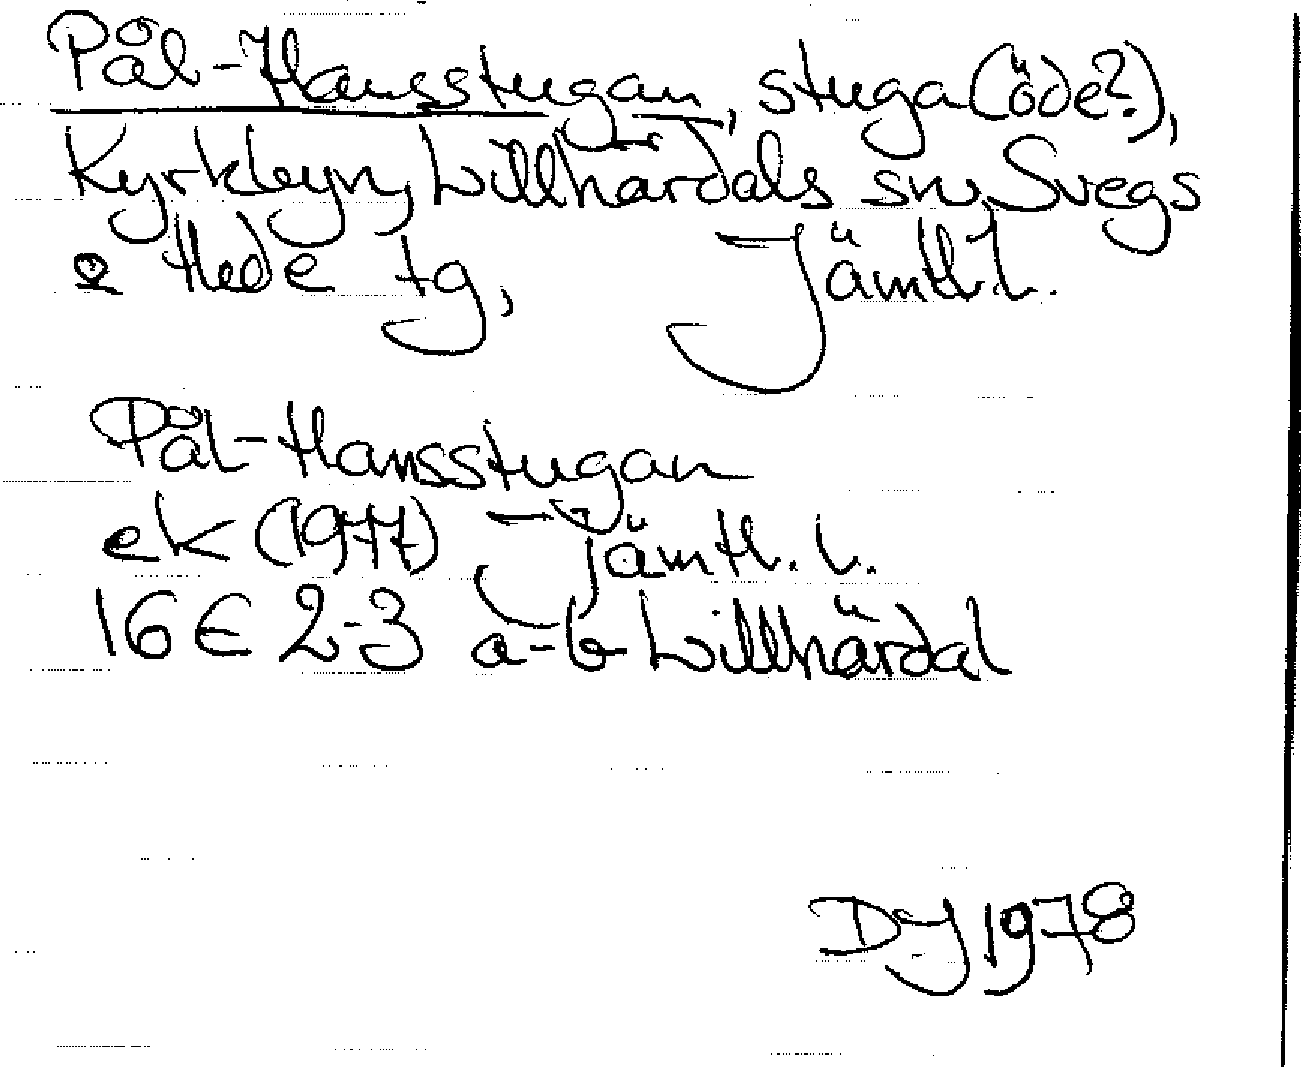 Pål-Hansstugan, stuga (öde?),
Kyrkbyn, Lillhärdals sn, Svegs
o Hede tg, Jämtl. l.
Pål-Hansstugan
ek (1977) Jämtl. l.
16 E 2-3 a-b Lillhärdal
DJ 1978